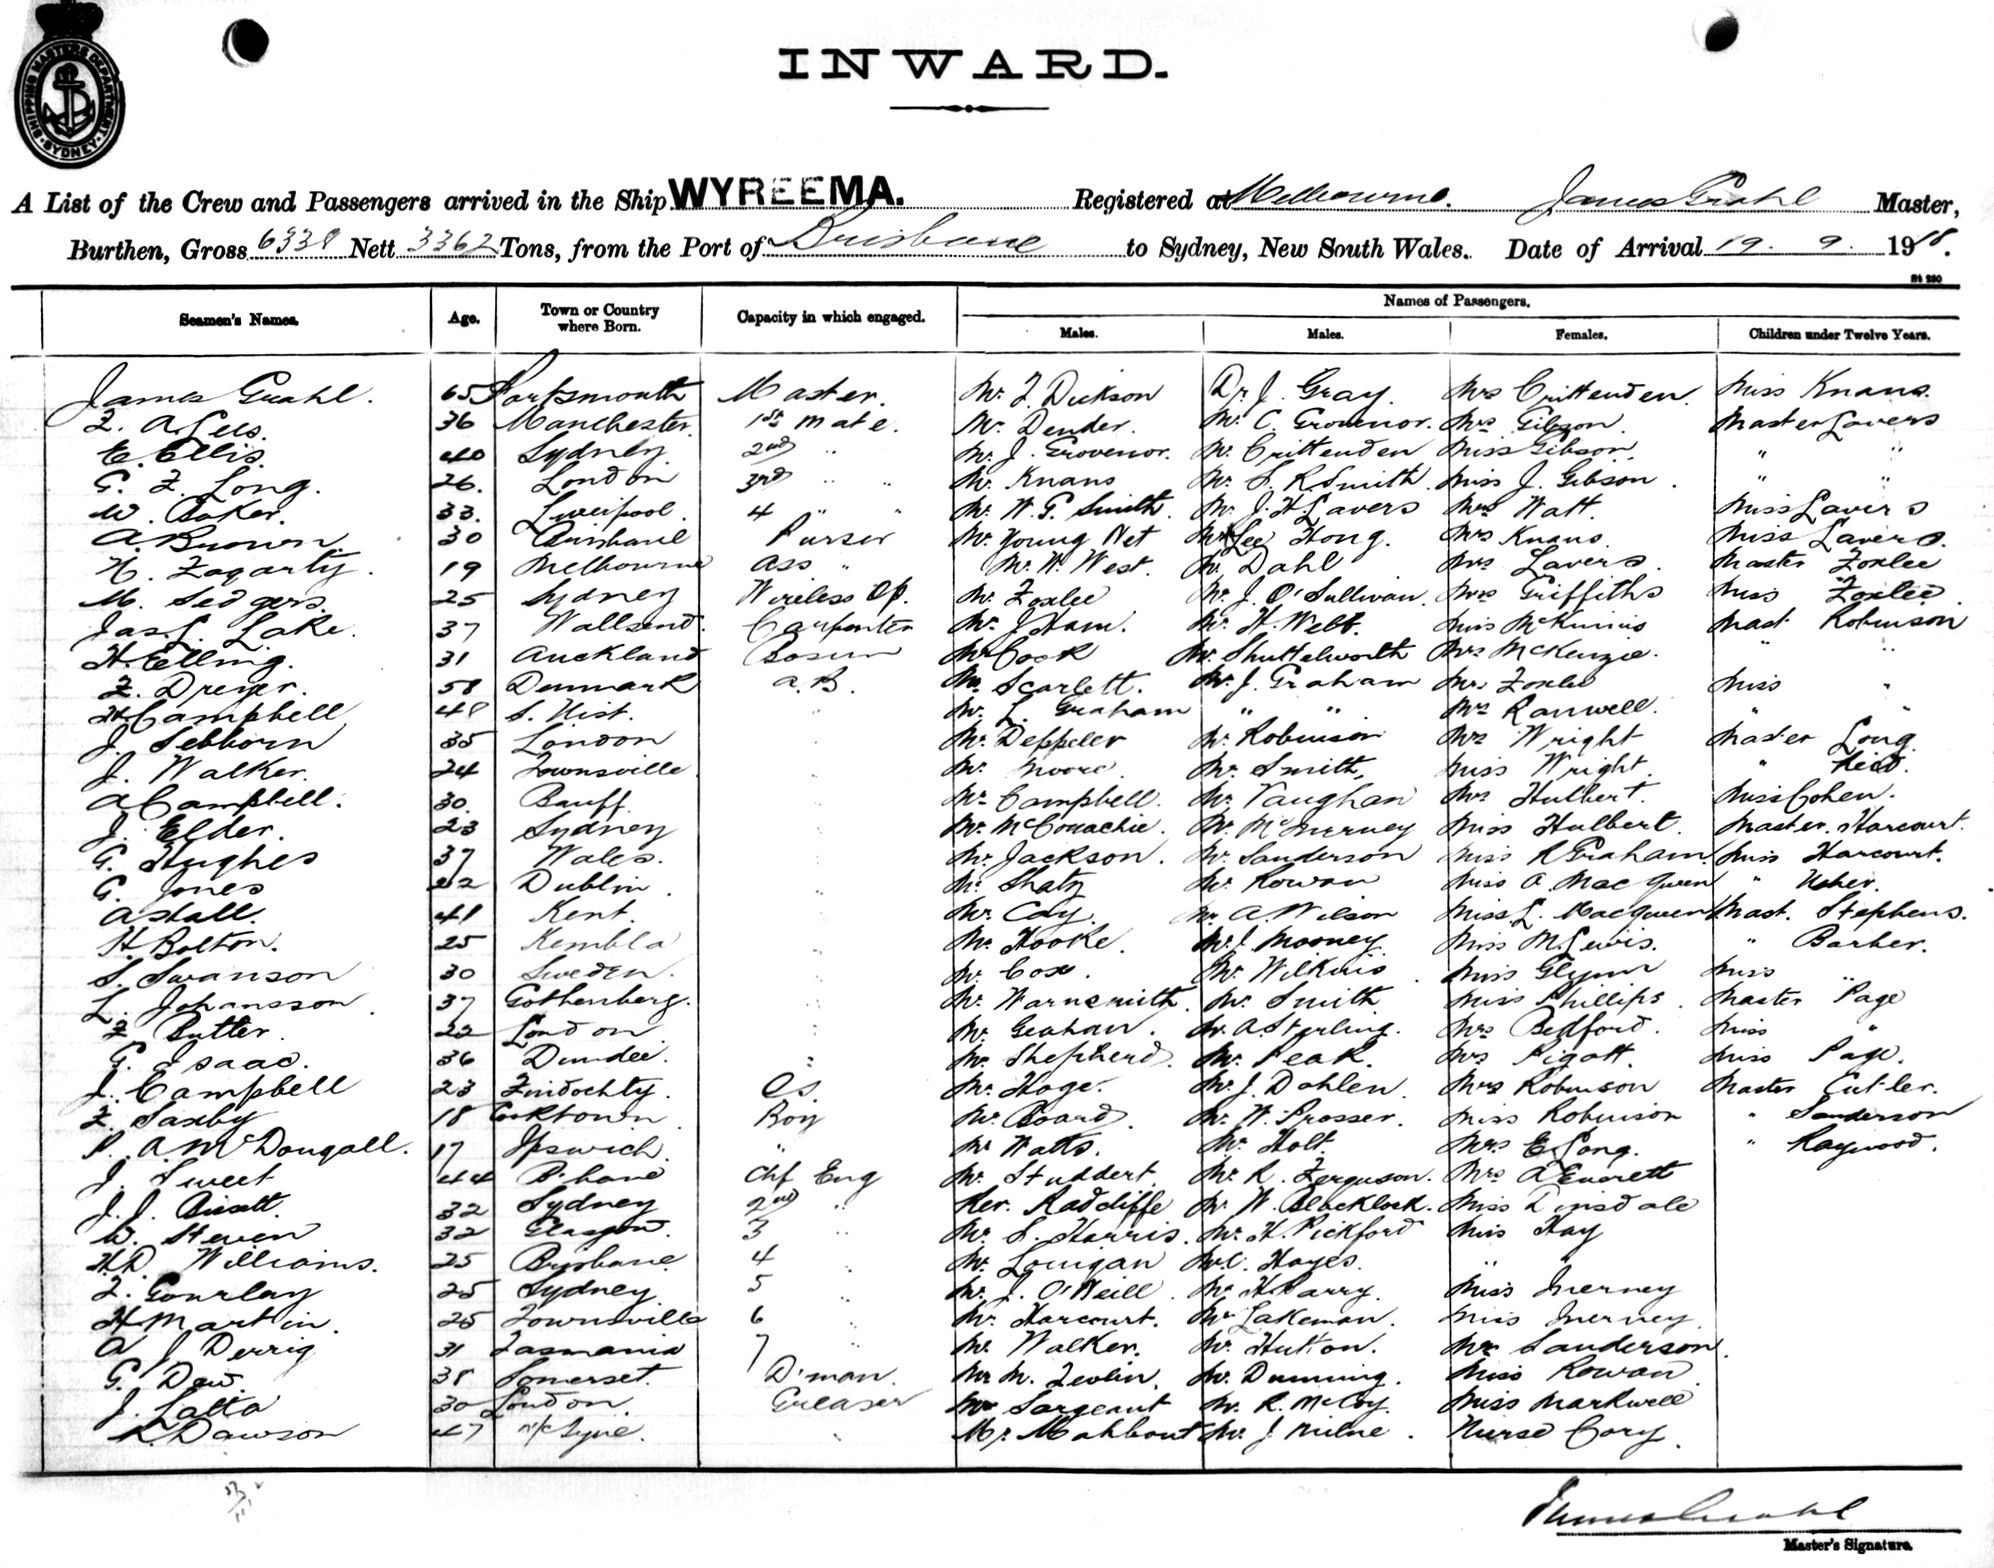 SHIPPING MASTERS DEPARTMENT
SYDNEY
INWARD.
A List of the Crew and Passengers arrived in the Ship WYREEMA. Registered at Melbourne. James Grahl Master,
Burthen, Gross 6338 Nett 3362 Tons, from the Port of Brisbane to Sydney, New South Wales. Date of Arrival 19. 9. 1918.
Seamen's Names. Age. Town or Country where Born. Capacity in which engaged. Names of Passengers.
Males. Males. Females. Children under Twelve Years.
James Grahl. 65 Portsmouth Master. Mr. F. Dickson Dr J. Gray. Mrs Crittenden. Miss Knans.
F. A. Lees. 36 Manchester. 1st Mate. Mr. Dender. Mr. C. Grovenor. Mrs Gibson. Master Lavers
E. Ellis. 40 Sydney. 2nd " Mr. J. Grovenor. Mr. Crittenden Miss Gibson. " "
G. F. Long. 26. London 3rd " " Mr. Knans Mr. S. R. Smith. Miss J. Gibson. " "
W. Baker. 33. Liverpool. 4 " " Mr. W. G. Smith. Mr. J. H. Lavers Mrs Watt. Miss Lavers
A. Brown. 30 Brisbane Purser Mr. Young Net Mr Lee Hong. Mrs Knans. Miss Lavers.
N. Fogarty. 19 Melbourne Ass " Mr. W. West. Mr. Dahl Mrs Lavers. Master Foxlee
M. Sedgers. 25 Sydney Wireless Op. Mr. Foxlee Mr. J. O'Sullivan. Mrs Griffiths Miss Foxlee
Jas. L. Lake. 37 Wallsend. Carpenter Mr. J Ham. Mr. H. Webb. Miss McKinnis Mast. Robinson
H. Elling. 31 Auckland Bosun Mr Cock Mr. Shuttelworth Mrs McKenzie. " "
F. Dreyer. 58 Denmark A.B. Mr. Scarlett. Mr. J. Graham Mrs Foxlee Miss "
H Campbell 48 S. Uist. " Mr. L. Graham " " Mrs Ranwell. " "
J. Sebborn 35 London " Mr. Deppeler Mr. Robinson Mrs Wright Master Long.
J. Walker. 24 Townsville " Mr. Moore. Mr. Smith, Miss Wright. " Reid.
A Campbell. 30. Banff. " Mr. Campbell. Mr. Vaughan Mrs Hulbert. Miss Cohen.
J. Elder. 23 Sydney " Mr. McConachie. Mr. McInerney Miss Hulbert. Master. Harcourt.
G. Hughes 37 Wales. " Mr. Jackson. Mr. Sanderson Miss R Graham. Miss Harcourt.
G. Jones 22 Dublin. " Mr. Shatz Mr. Rowan Miss A. MacQueen " Usher.
A Stall. 41 Kent. " Mr. Coy. Mr. A. Wilson Miss L. Macqueen Mast. Stephens.
H. Bolton. 25 Kembla " Mr. Hooke. Mr. J. Mooney. Miss M. Lewis. " Barber.
S. Swanson 30 Sweden. " Mr. Cox. Mr. Wilkins Miss Glynn Miss "
L. Johansson. 37 Gothenberg. " Mr. Warnsmith. Mr. Smith Miss Phillips. Master Page
F Butter. 22 London " Mr. Geahan. Mr. A. Sterling. Mrs Bedford. Miss "
G. Isaac. 36 Dundee. " Mr. Shepherd. Mr. Peak. Mrs Pigott. Miss Page.
J. Campbell 23 Findochty. O.S. Mr. Hage. Mr. J. Dahlen. Mrs Robinson Master Cutler.
F. Saxby 18 Cooktown. Boy Mr. Board. Mr. W. Prosser. Miss Robinson " Sanderson
P. A. McDougall. 17 Ipswich. " Mr Watts. Mr. Holt. Mrs. E Long. " Raywood.
J. Sweet 44 B'bane Chf Eng Mr. Studdert. Mr. R. Ferguson. Mrs A Everett
J. J. Bissett. 32 Sydney 2nd " Rev. Radcliffe Mr. W. Blacklock. Miss Dinsdale
W. Steven 32 Glasgow. 3 " Mr. S. Harris. Mr. H. Pickford Miss Hay
H. D. Williams. 25 Brisbane 4 " Mr. Lonigan Mr. C. Hayes. " "
F. Gourlay 25 Sydney. 5 " Mr. J. O'Neill Mr. H Parry. Miss Inerney
H Martin. 25 Townsville 6 " Mr. Harcourt. Mr Lakeman. Miss Inerney
A J Derrig 31 Tasmania 7 " Mr. Walker. Mr. Hutton. Mrs Sanderson.
G. Daw. 38 Somerset. D'man. Mr M. Zevlin. Mr. Dunning. Miss Rowan
J. Latta 30 London. Greaser Mr Sargeant Mr. R. McCoy. Miss Markwell
R. Dawson 47 N/C Tyne. " Mr. Mahbout Mr. J Milne. Nurse Cory.
James Grahl
Master's Signature.